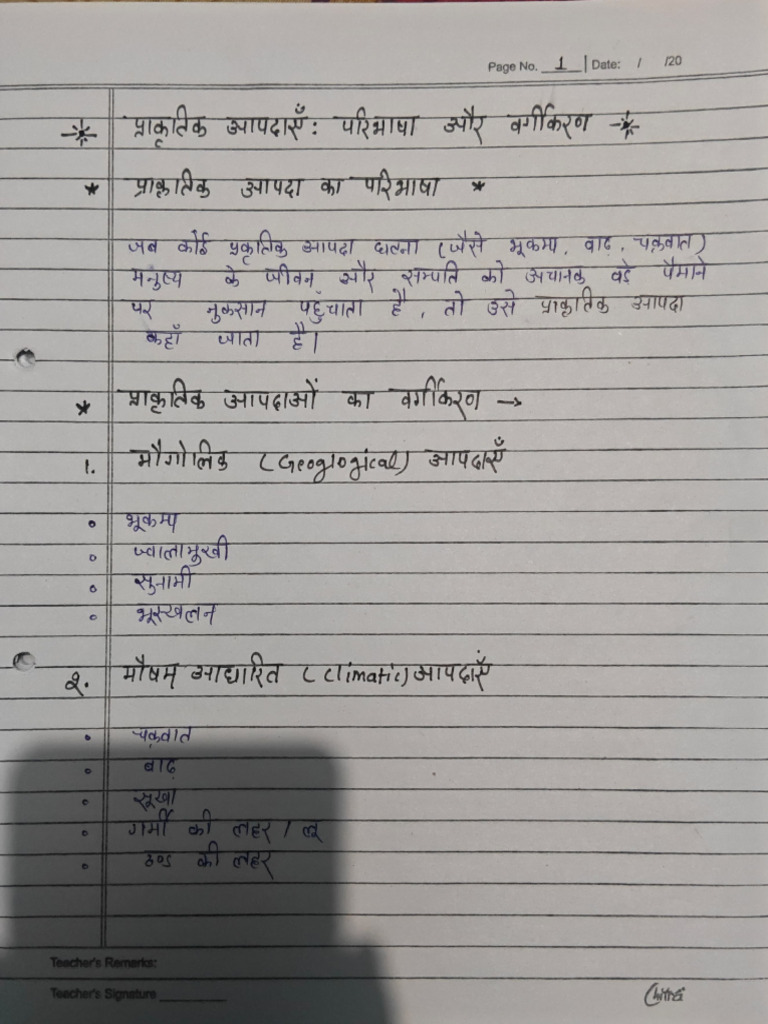 Page No. 1 Date: / /20
प्राकृतिक आपदाएँ : परिभाषा और वर्गीकरण
* प्राकृतिक आपदा का परिभाषा *
जब कोई प्रकृतिक आपदा घटना (जैसे भूकम्प, बाढ़, चक्रवात)
मनुष्य के जीवन और सम्पति को अचानक बड़े पैमाने
पर नुकसान पहुँचाता है, तो उसे प्राकृतिक आपदा
कहाँ जाता है।
* प्राकृतिक आपदाओं का वर्गीकरण →
1. भौगोलिक (Geoglogical) आपदाएँ
• भूकम्प
• ज्वालामुखी
• सुनामी
• भूस्खलन
2. मौषम आधारित (Climatic) आपदाएँ
• चक्रवात
• बाढ़
• सूखा
• गर्मी की लहर / लू
• ठण्ड की लहर
Teacher's Remarks:
Teacher's Signature